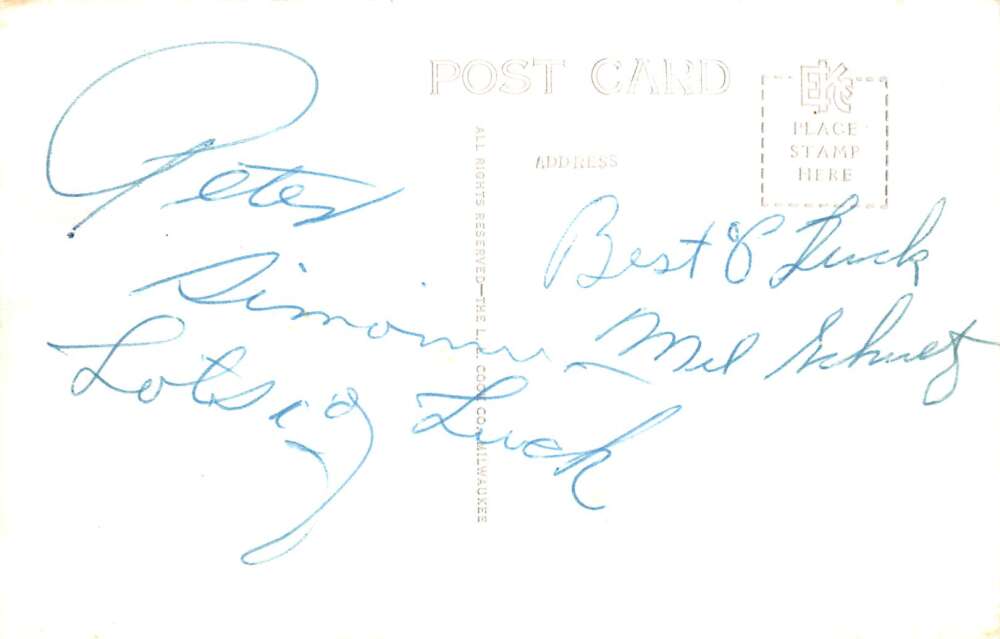 POST CARD
EKC
PLACE
STAMP
HERE
ADDRESS
ALL RIGHTS RESERVED—THE L.L. COOK CO., MILWAUKEE
Peter
Lots of Luck
Best of Luck
Mel